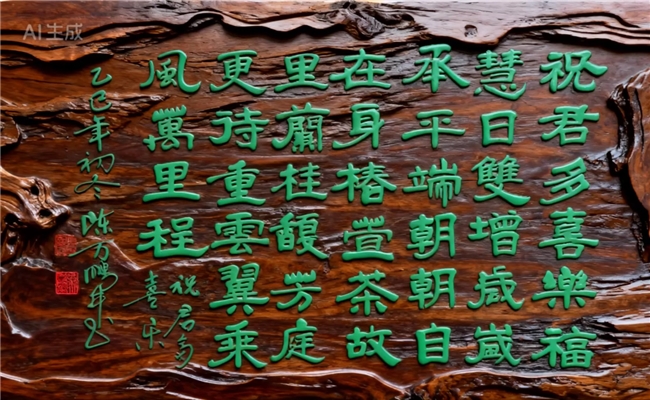 AI生成
祝君多喜樂福
慧日雙增歲歲
承平端朝朝自
在身椿萱茶故
里蘭桂馥芳庭
更待重雲翼乘
風萬里程
祝君多
喜乐
乙巳年初冬陈万鹏书